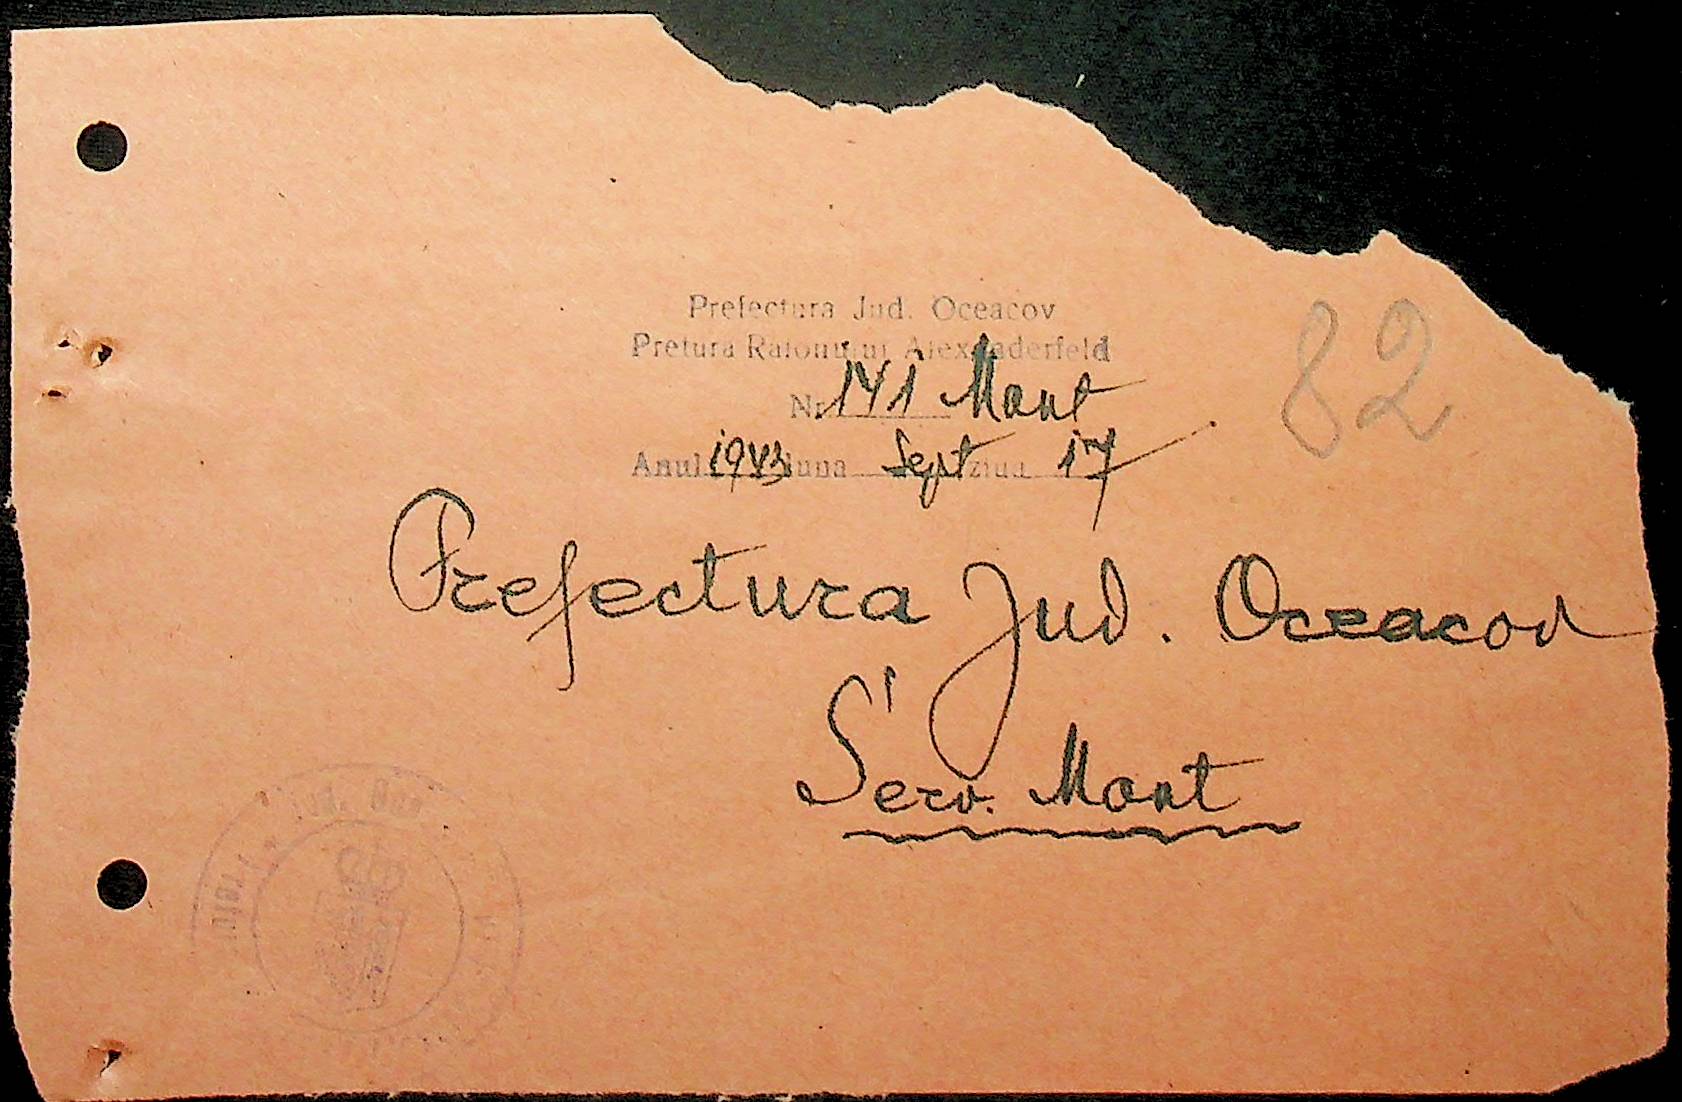 Prefectura Jud. Oceacov
Pretura Raionului Alexanderfeld
Nr. 141 Mont
Anul 1943 luna Sept ziua 17
82
Prefectura Jud. Oceacov
Serv. Mont